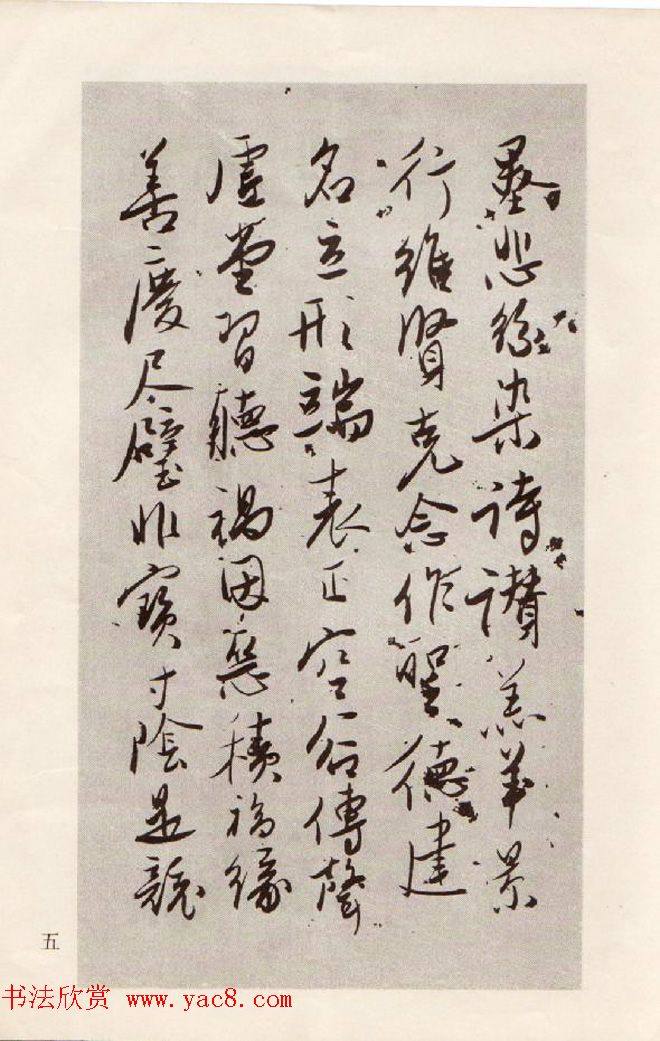 墨悲絲染詩讃羔羊景
行維賢克念作聖德建
名立形端表正空谷傳聲
虛堂習聽禍因惡積福緣
善慶尺璧非寶寸陰是競
五
书法欣赏 www.yac8.com